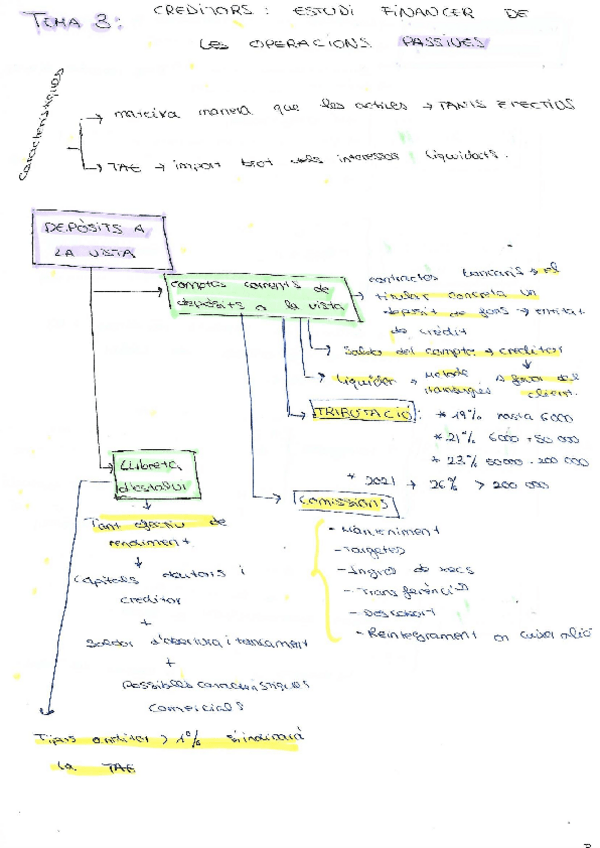 TEMA 3:
CREDITORS: ESTUDI FINANCER DE
LES OPERACIONS PASSIVES
Característiques
→ mateixa manera que les actives → TANTS EFECTIUS
→ TAE → import brut dels interessos liquidats.
DEPÒSITS A
LA VISTA
comptes corrents de
depòsits a la vista
→ contractes bancaris → el
titular concreta un
deposit de fons → entitat
de crèdit
→ Saldo del compte → creditor
→ Liquidar → Mètode
hamburguès
→ a favor del
client.
→ TRIBUTACIÓ: * 19% hasta 6000
* 21% 6000 - 50 000
* 23% 50000 - 200 000
* 2021 → 26% > 200 000
→ COMISSIONS
- Manteniment
- Targetes
- Ingrés de xecs
- Transferències
- Descobert
- Reintegrament en caixa
Llibreta
d'estalvi
Tant efectiu de
rendiment
Capitals deutors i
creditor
+
Saldos d'obertura i tancament
+
Possibles característiques
comercials
Tipus creditor > 1% s'indicarà
la TAE